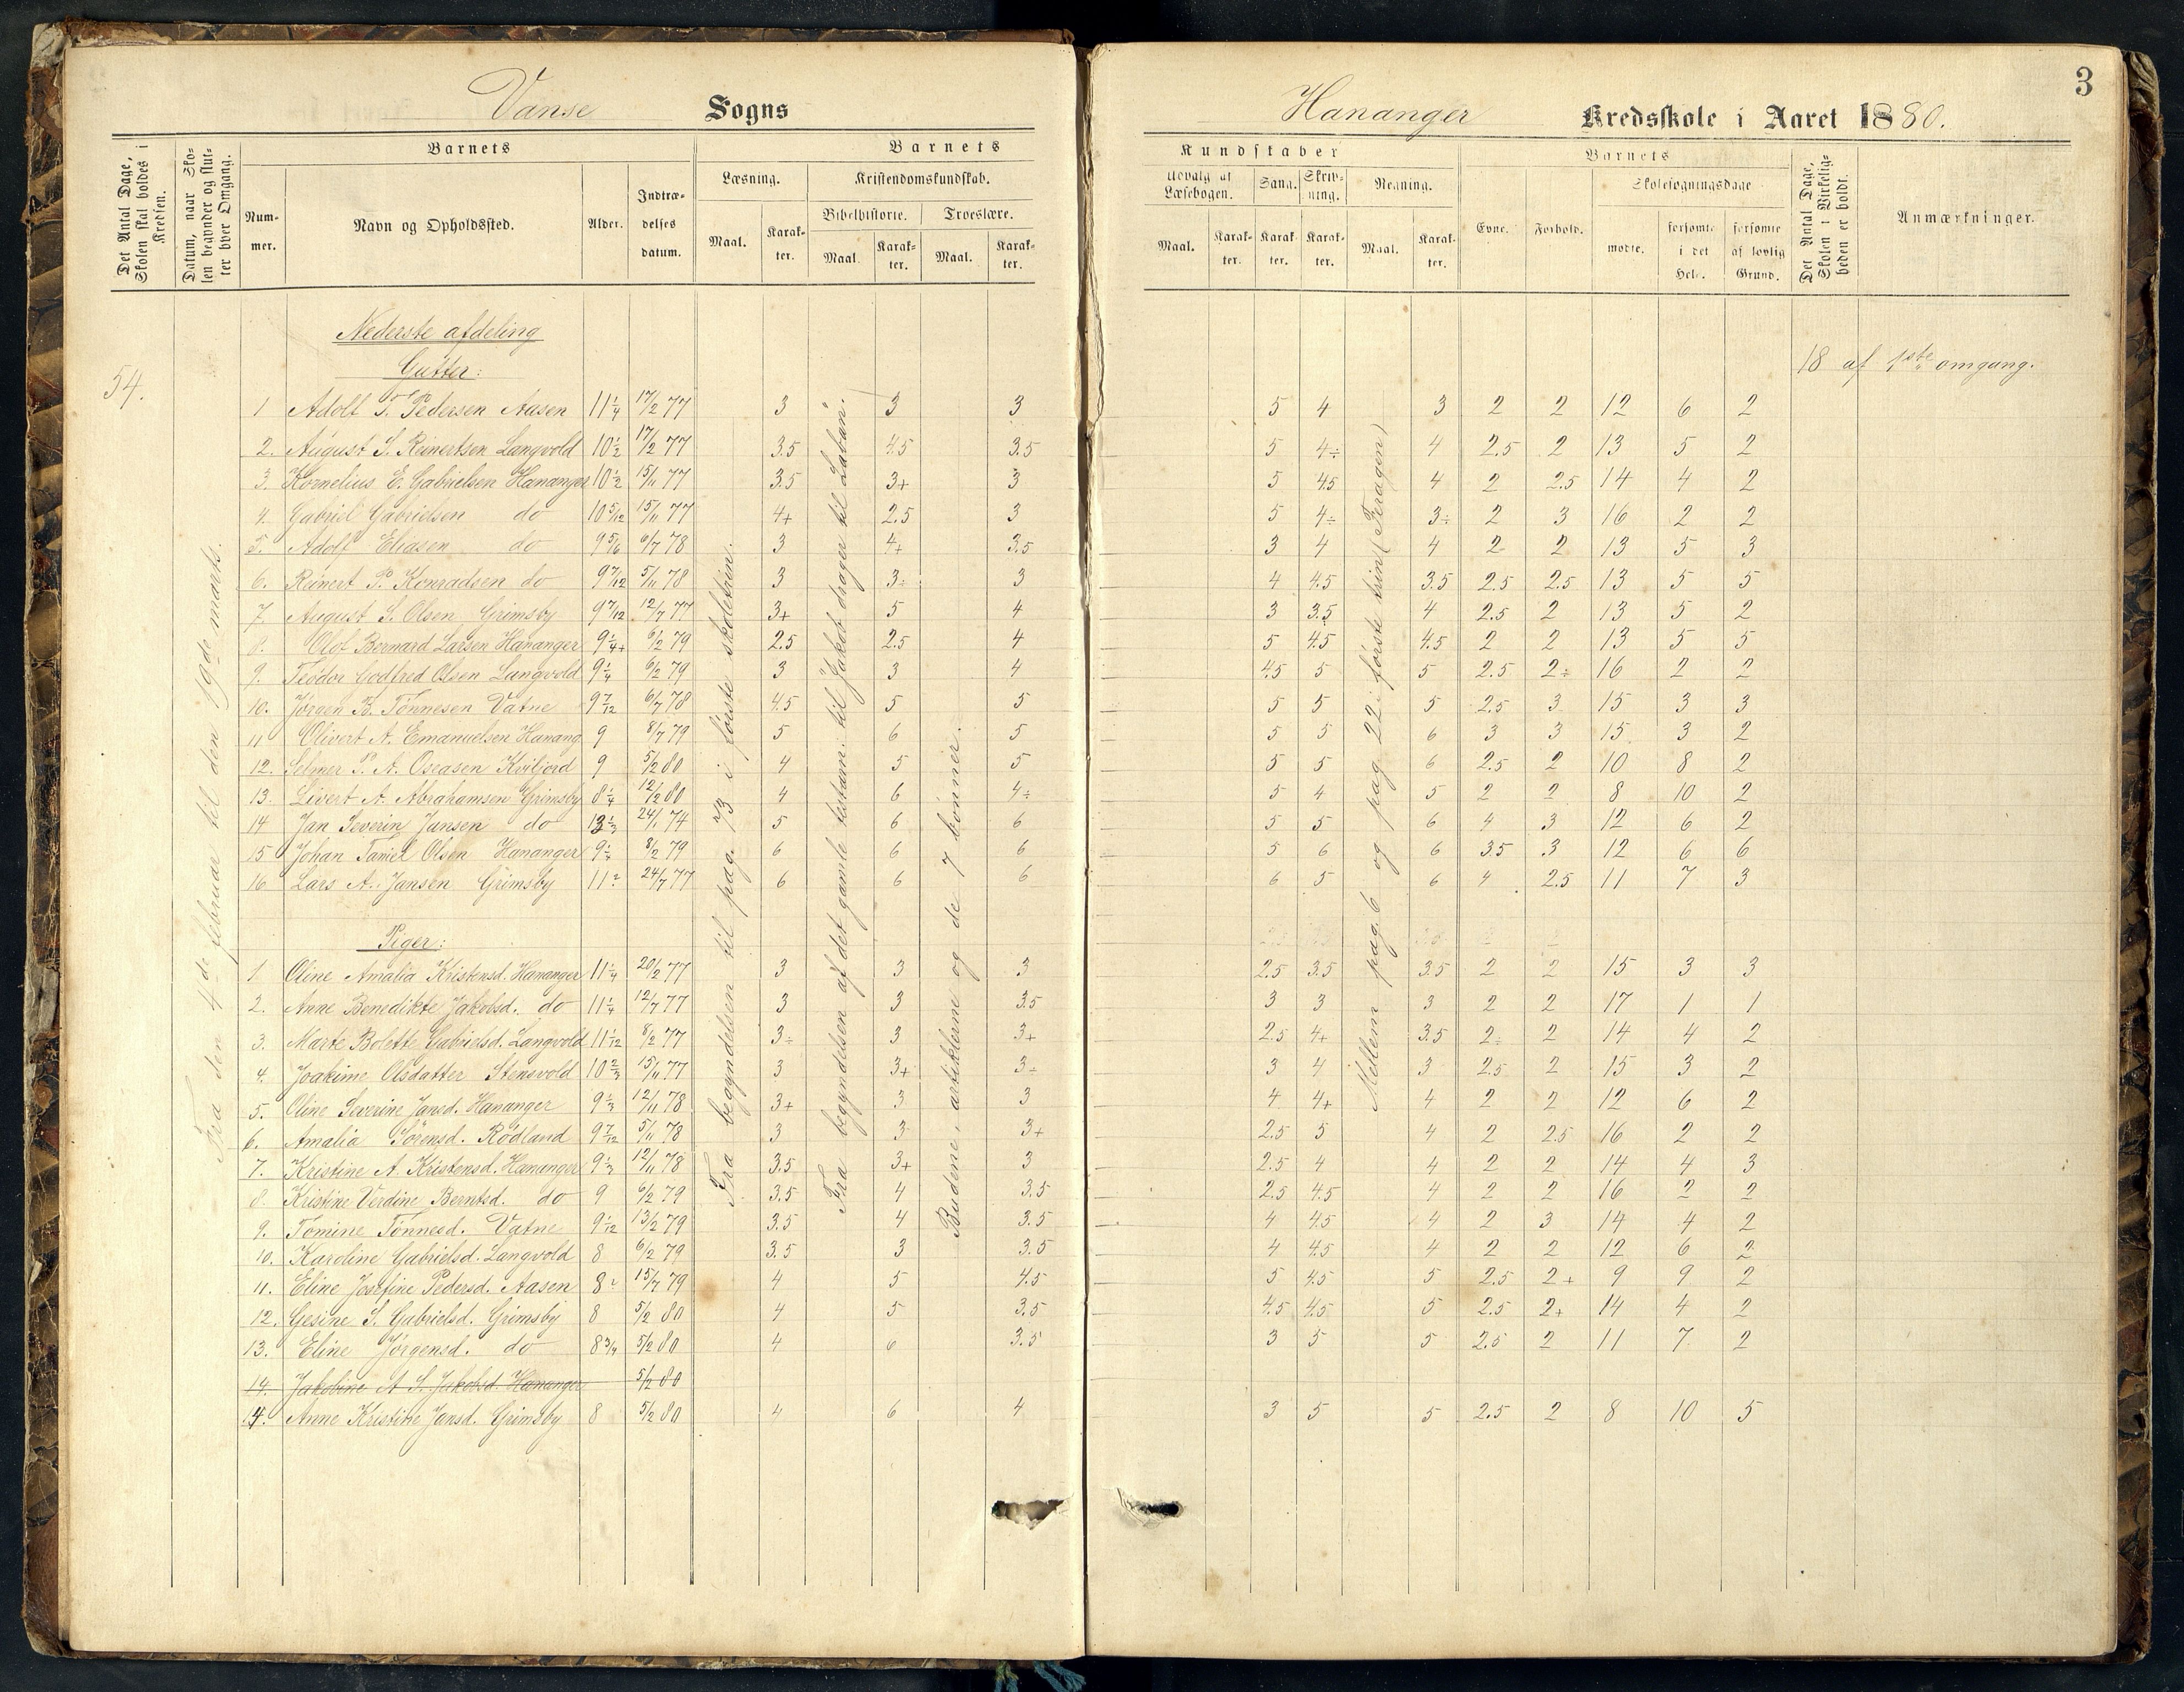 3
Vanse Sogns
Hananger Kredsskole i Aaret 1880.
Det Antal Dage, Skolen skal holdes i Kredsen.
Datum, naar Skolen begynder og slutter hver Omgang.
Barnets
Nummer.
Navn og Opholdssted.
Alder.
Indtrædelses datum.
Barnets
Læsning.
Maal.
Karakter.
Kristendomskundskab.
Bibelhistorie.
Maal.
Karakter.
Troeslære.
Maal.
Karakter.
Kundskaber
Udvalg af Læsebogen.
Maal.
Karakter.
Sang.
Karakter.
Skrivning.
Karakter.
Regning.
Maal.
Karakter.
Barnets
Evne.
Forhold.
Skolesøgningsdage
mødte.
forsømte i det Hele.
forsømte af lovlig Grund.
Det Antal Dage, Skolen i Virkeligheden er holdt.
Anmærkninger.
54.
Fra den 4de februar til den 19de marts.
Fra begyndelsen til pag. 73 i første skoletrin.
Fra begyndelsen af det gamle testam. til Jakob drager til Laban.
Budene, artiklerne og de 7 bønner.
Mellem pag. 6 og pag. 22 i første trin (Feragen)
18 af 1ste omgang.
Nederste afdeling
Gutter:
1 Adolf T. Pedersen Aasen 11 1/4 17/2 77 3 3 3 5 4 3 2 2 12 6 2
2. August S. Reinertsen Langvold 10 1/2 17/2 77 3.5 4.5 3.5 5 4÷ 4 2.5 2 13 5 2
3. Kornelius E. Gabrielsen Hananger 10 1/2 15/11 77 3.5 3+ 3 5 4.5 4 2 2.5 14 4 2
4. Gabriel Gabrielsen do 10 5/12 15/11 77 4+ 2.5 3 5 4÷ 3÷ 2 3 16 2 2
5. Adolf Eliasen do 9 5/6 6/7 78 3 4+ 3.5 3 4 4 2 2 13 5 3
6. Reinert P. Konradsen do 9 7/12 5/11 78 3 3÷ 3 4 4.5 3.5 2.5 2.5 13 5 5
7. August S. Olsen Grimsby 9 7/12 12/7 77 3+ 5 4 3 3.5 4 2.5 2 13 5 2
8. Olof Bernard Larsen Hananger 9 1/4+ 6/2 79 2.5 2.5 4 5 4.5 4.5 2 2 13 5 5
9. Teodor Godtfred Olsen Langvold 9 1/4 6/2 79 3 3 4 4.5 5 5 2.5 2÷ 16 2 2
10. Jørgen B. Tönnesen Vatne 9 7/12 6/7 78 4.5 5 5 5 5 5 2.5 3 15 3 3
11 Olivert A. Emanuelsen Hanang 9 8/7 79 5 6 5 5 5 6 3 3 15 3 2
12. Selmer P. A. Oseasen Kviljord 9 5/2 80 4 5 5 5 5 6 2.5 2 10 8 2
13. Sivert A. Abrahamsen Grimsby 8 1/4 12/2 80 4 6 4÷ 5 4 5 2 2 8 10 2
14 Jan Severin Jansen do 13 1/3 24/1 74 5 6 6 5 5 6 4 3 12 6 2
15 Johan Taniel Olsen Hananger 9 1/4 8/2 79 6 6 6 5 6 6 3.5 3 12 6 6
16 Lars A. Jansen Grimsby 11? 24/7 77 6 6 6 6 5 6 4 2.5 11 7 3
Piger:
1. Oline Amalia Kristensd. Hananger 11 1/4 20/2 77 3 3 3 2.5 3.5 3.5 2 2 15 3 3
2. Anne Benedikte Jakobsd. do 11 1/4 12/7 77 3 3 3.5 3 3 3 2 2 17 1 1
3. Marte Bolette Gabrielsd. Langvold 11 1/12 8/2 77 3÷ 3 3+ 2.5 4+ 3.5 2÷ 2 14 4 2
4. Joakime Olsdatter Stensvold 10 2/3 15/11 77 3 3+ 3÷ 3 4 3 2.5 2 15 3 2
5. Oline Severine Jansd. Hananger 9 1/3 12/11 78 3+ 3 3 4 4+ 4 2 2 12 6 2
6. Amalia Sörensd. Rödland 9 7/12 5/11 78 3 3 3+ 2.5 5 4 2 2.5 16 2 2
7. Kristine A. Kristensd. Hananger 9 1/3 12/11 78 3.5 3+ 3 2.5 4 4 2 2 14 4 3
8. Kristine Verdine Berntsd. do 9 6/2 79 3.5 4 3.5 2.5 4.5 4 2 2 16 2 2
9. Tomine Tönnesd. Vatne 9 1/12 13/2 79 3.5 4 3.5 4 4.5 4 2 3 14 4 2
10. Karoline Gabrielsd. Langvold 8 6/2 79 3.5 3 3.5 4 4.5 4 2 2 12 6 2
11. Eline Josefine Pedersd. Aasen 8? 15/7 79 4 5 4.5 5 4.5 5 2.5 2+ 9 9 2
12. Gesine S. Gabrielsd. Grimsby 8 5/2 80 4 5 3.5 4.5 4.5 5 2.5 2+ 14 4 2
13. Eline Jörgensd. do 8 3/4 5/2 80 4 6 3.5 3 5 5 2.5 2 11 7 2
14. Jakobine A S. Jakobsd. Hananger 5/2 80
14. Anne Kristine Jansd. Grimsby 8 5/2 80 4 6 4 3 5 5 2.5 2 8 10 5